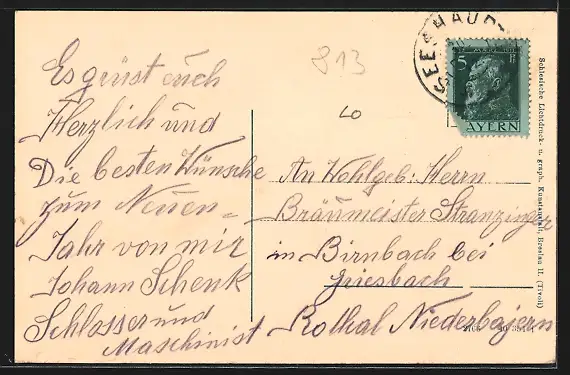 Es grüst euch
Herzlich und
Die besten Wünsche
zum Neuen-
Jahr von mir
Johann Schenk
Schlosser und
Maschinist
813
LO
An Wohlgeb: Herrn
Bräumeister Stranzinger
in Birnbach bei
Griesbach
Rothal Niederbajern
SEESHAUPT
5
AYERN
Schlesische Lichtdruck- u. graph. Kunstanstalt, Breslau II. (Tivoli)